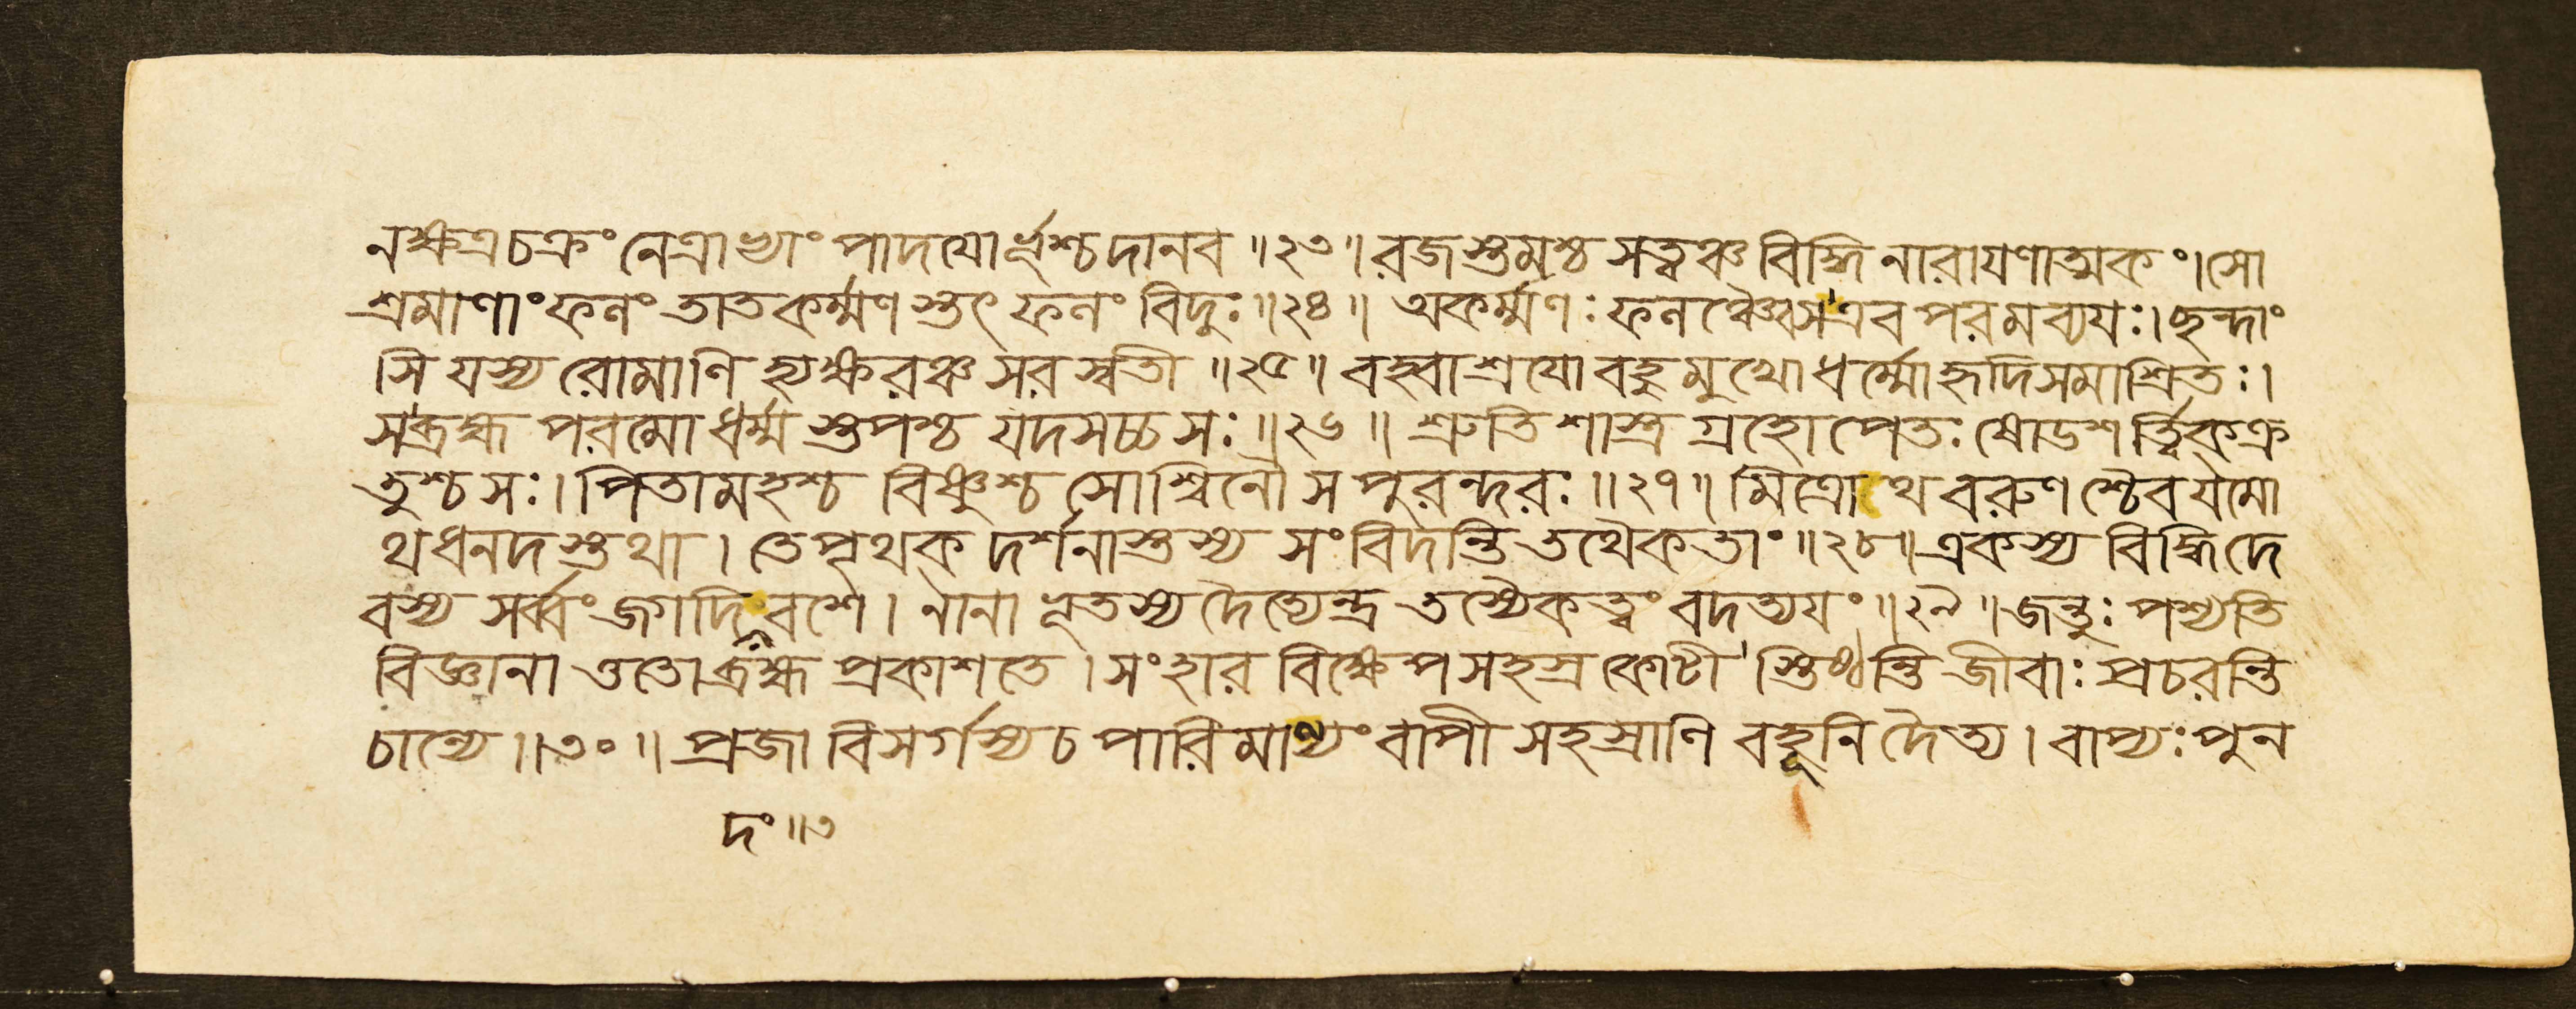 নক্ষত্রচক্রং নেত্রাভ্যাং পাদযোর্ভূশ্চদানব ॥২৩॥ রজস্তমশ্চ সত্ত্বঞ্চ বিদ্ধি নারাযণাত্মকং। সো
শ্রমাণাংফলং তাতকর্ম্মণস্তৎ ফলং বিদুঃ ॥২৪॥ অকর্ম্মণঃ ফলঞ্চৈব স এব পরমব্যযঃ। ছন্দাং
সি যস্য রোমাণি হ্যক্ষরঞ্চ সরস্বতী ॥২৫॥ বহ্বাশ্রযো বহুমুখো ধর্ম্মো হৃদিসমাশ্রিতঃ।
সব্রহ্ম পরমো ধর্ম্ম স্তপশ্চ যদসচ্চ সঃ ॥২৬॥ শ্রুতিশাস্ত্র গ্রহোপেতঃ ষোডশর্ত্ত্বিকক্র
তুশ্চ সঃ। পিতামহশ্চ বিষ্ণুশ্চ সোশ্বিনৌ স পুরন্দরঃ ॥২৭॥ মিত্রোথ বরুণশ্চৈব যমো
থ ধনদস্তথা। তে পৃথক দর্শনাস্তস্য সংবিদন্তি তথৈকতাং ॥২৮॥ একস্য বিদ্ধি দে
বস্য সর্ব্বং জগদিদং বশে। নানা ভূতস্য দৈত্যেন্দ্র তস্যৈকত্বং বদত্যযং ॥২৯॥ জন্তুঃ পশ্যতি
বিজ্ঞানা ত্ততো ব্রহ্ম প্রকাশতে। সংহার বিক্ষেপ সহস্র কোটী স্তিষ্ঠন্তি জীবাঃ প্রচরন্তি
চান্যে ॥৩০॥ প্রজা বিসর্গস্য চ পারিমাণ্যং বাপী সহস্রাণি বহূনি দৈত্য। বাপ্যঃ পুন
দং ॥৩